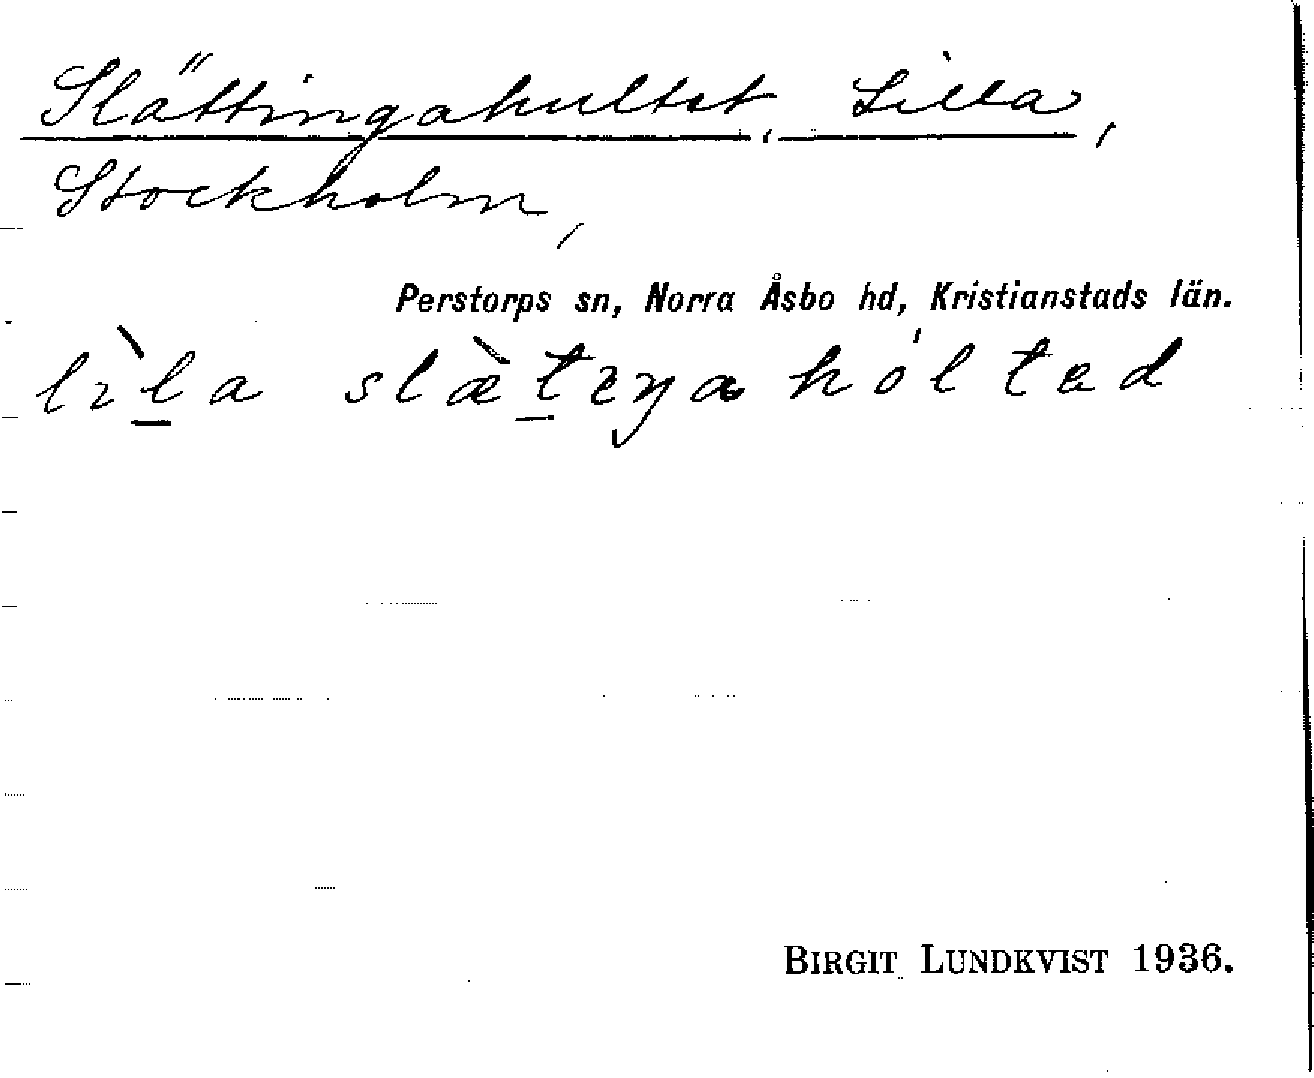 Slättingahultet, Lilla,
Stockholm,
Perstorps sn, Norra Åsbo hd, Kristianstads län.
lìl̲a slæ̀t̲ıŋa hól tad
BIRGIT LUNDKVIST 1936.